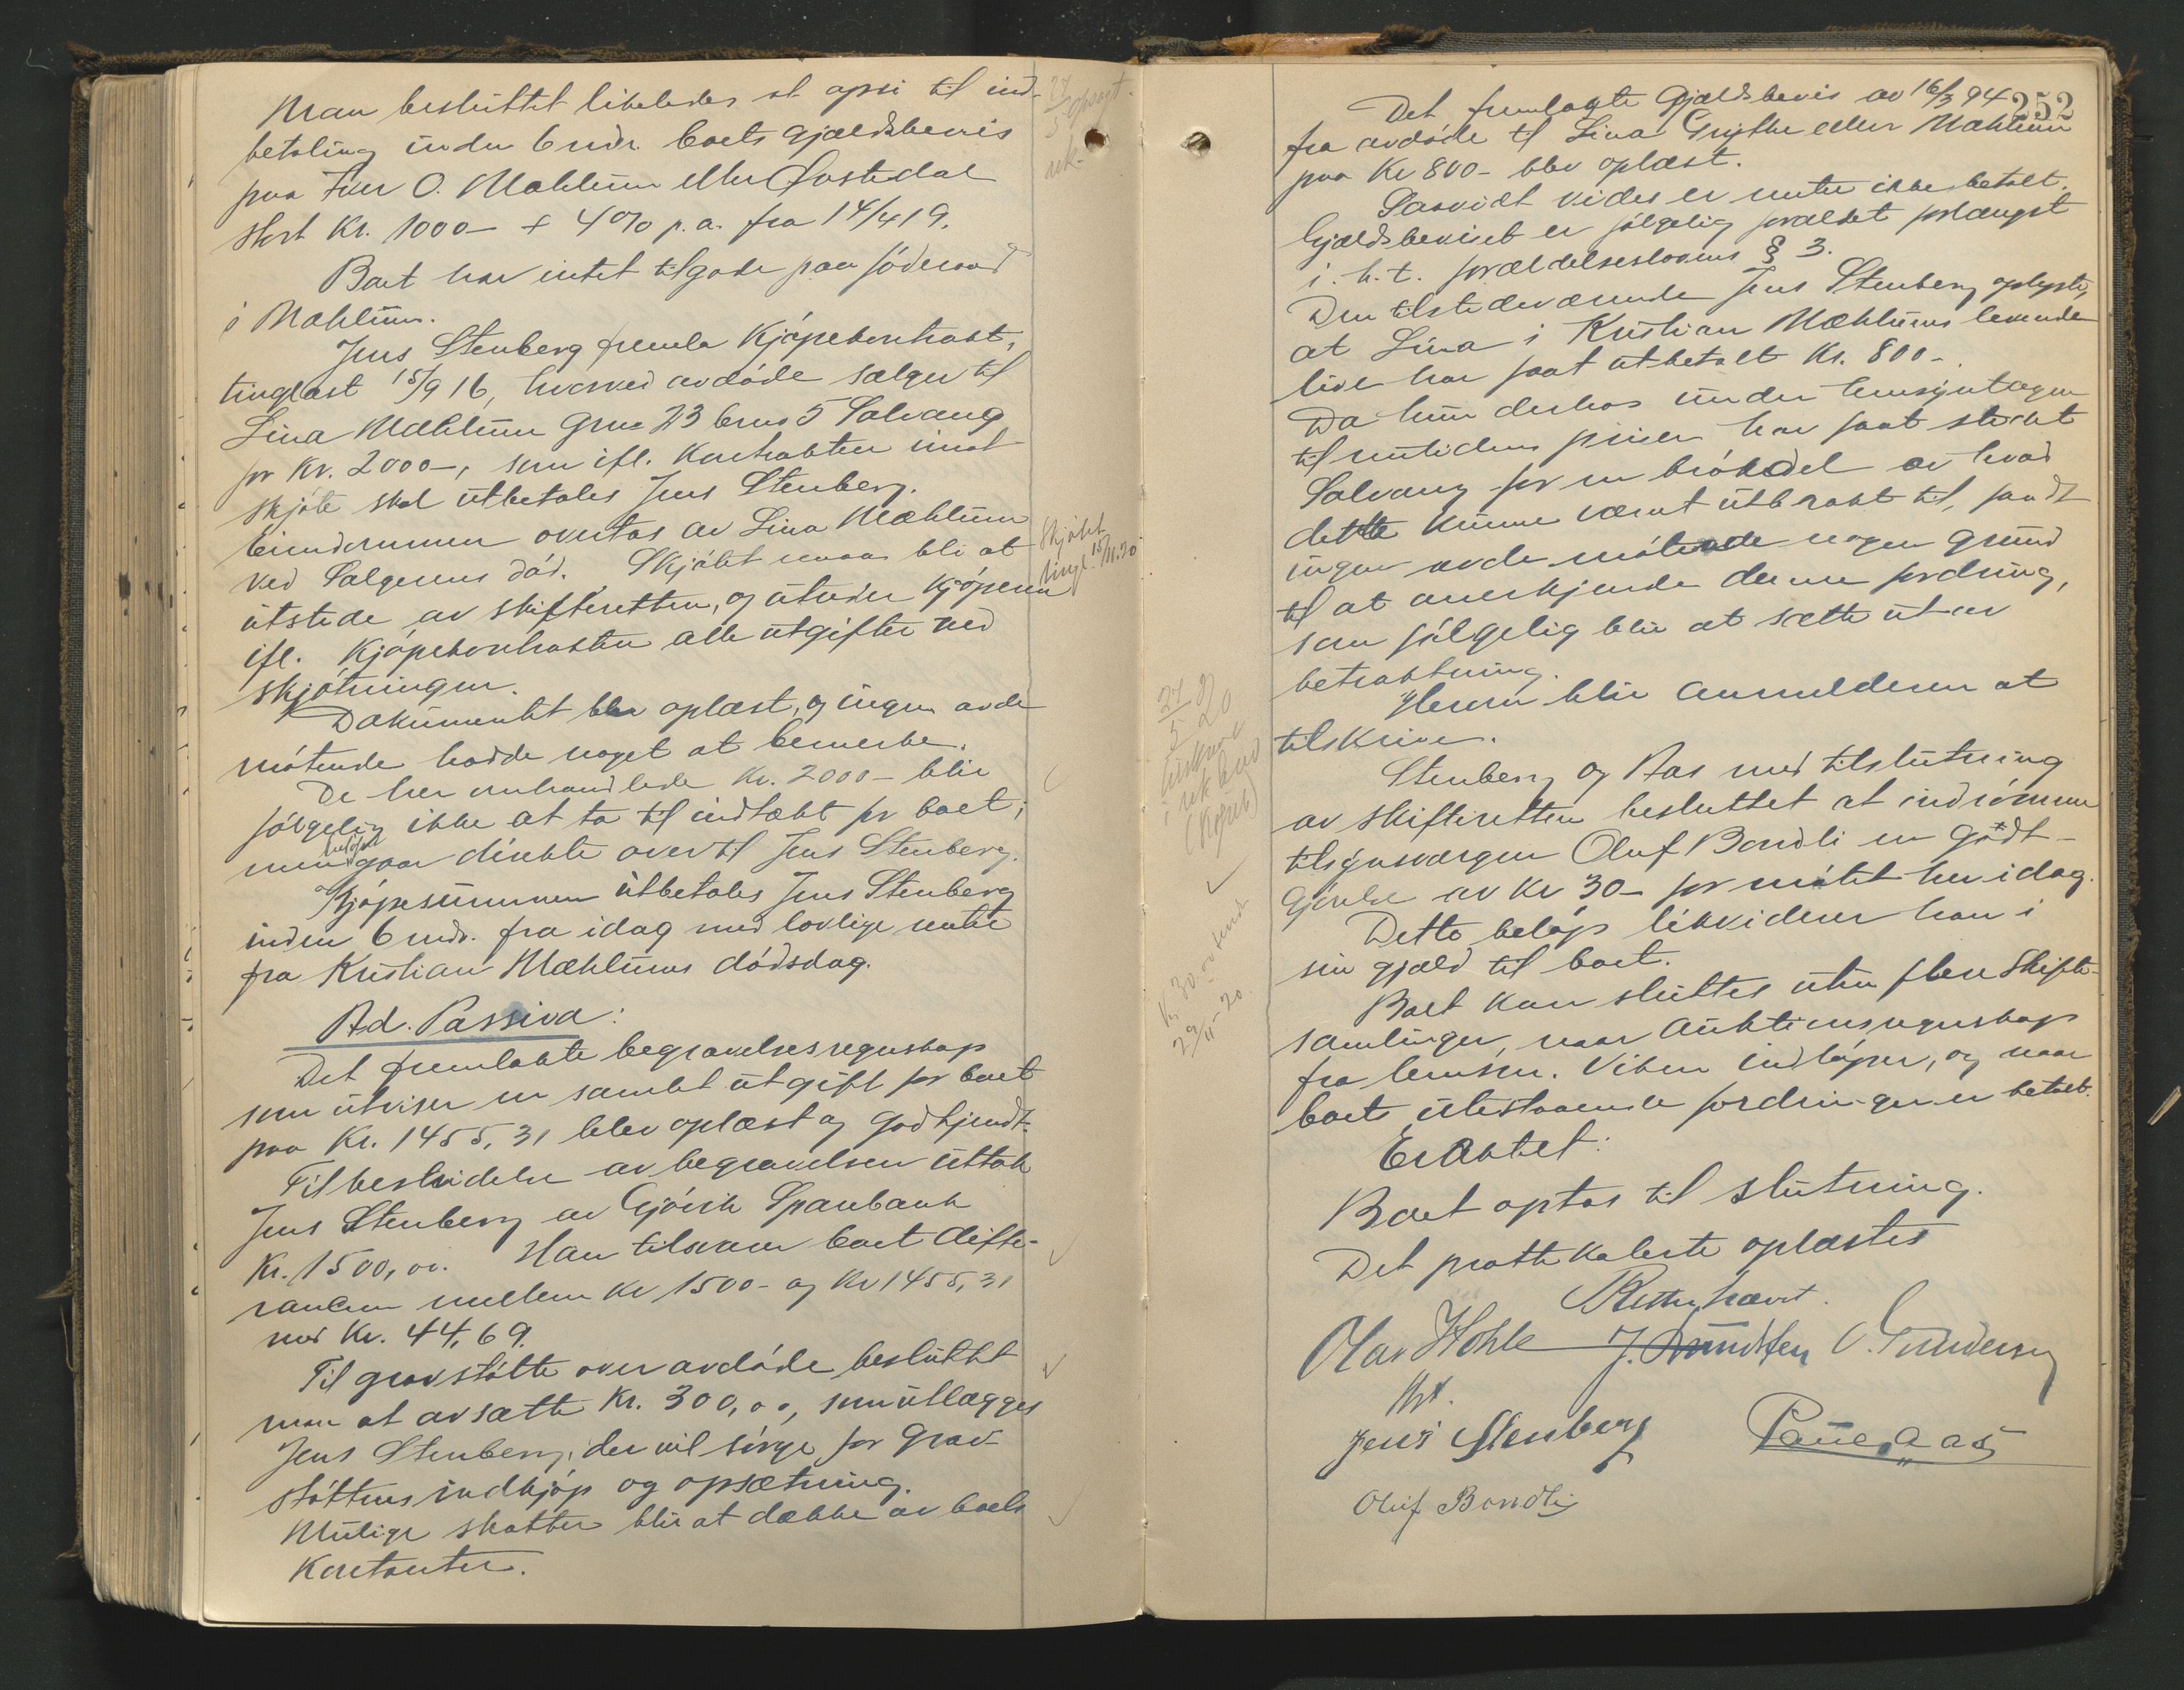 Man besluttet likeledes at opsi til ind-
betaling inden 6 mdr. boets gjældsbevis
paa Iver O. Mæhlum eller Sostedal
stort Kr. 1000 - + 4 % p.a. fra 14/4 19.
Boet har intet tilgode paa föderaad
i Mæhlum.
Jens Stenberg fremla Kjöpekontrakt,
tinglæst 15/9 16, hvorved avdöde sælger til
Lina Mæhlum Gno 23 bno 5 Solvang
for Kr. 2000 -, som ifl. Kontrakten imot
skjöte skal utbetales Jens Stenberg.
Eiendommen overtas av Lina Mæhlum
ved Sælgerens död. Skjötet maa bli at
utstede av skifteretten, og utreder kjöperen
ifl. Kjöpekontrakten alle utgifter ved
skjötningen.
Dokumentet blev oplæst, og ingen av de
mötende hadde noget at bemerke.
De her omhandlede Kr. 2000 - blir
fölgelig ikke at ta til indtækt for boet,
men belöpet gaar direkte over til Jens Stenberg.
Kjöpesummen utbetales Jens Stenberg
inden 6 mdr. fra idag med lovlige renter
fra Kristian Mæhlums dödsdag.
Ad. Passiva:
Det fremlakte begravelsesregnskap
som utviser en samlet utgift for boet
paa Kr. 1455,31 blev oplæst og godkjendt.
Til bestridelse av begravelsen uttok
Jens Stenberg av Gjövik Sparebank
Kr. 1500,00. Han tilsvarer boet diffe-
rancen mellem Kr 1500 - og Kr 1455,31
med Kr. 44,69.
Til gravstötte over avdöde besluttet
man at avsætte Kr. 300,00, som utlægges
Jens Stenberg, der vil sörge for grav-
stöttens indkjöp og opsætning.
Mulige skatter blir at dække av boets
Kontanter.
27/5 opsagt
rek.
Skjötet
tingl. 15/11.20
252
Det fremlagte Gjældsbevis av 16/3 94
fra avdöde til Lina Grythe eller Mæhlum
paa Kr 800 - blev oplæst.
Saavidt vides er renter ikke betalt.
Gjældsbeviset er fölgelig forældet forlængst
i. h. t. forældelseslovens § 3.
Den tilstedeværende Jens Stenberg oplyste,
at Lina i Kristian Mæhlums levende
live har faat utbetalt Kr. 800 -.
Da hun derhos under hensyntagen
til nutidens priser har faat skjötet
Solvang for en brökdel av hvad
dette kunne været utbrakt til, fandt
ingen av de mötende nogen grund
til at anerkjende denne fordring,
som fölgelig blir at sætte ut av
betraktning.
Herom blir anmelderen at
tilskrive.
Stenberg og Aas med tilslutning
av skifteretten besluttet at indrömme
tilsynsværgen Oluf Bondli en godt-
gjörelse av Kr 30 - for mötet her idag.
Dette belöp likviderer han i
sin gjæld til boet.
Boet kan sluttes uten flere skifte-
samlinger, naar auktionsregnskap
fra lensm. Viken indlöper, og naar
boets utestaaende fordringer er betalt.
Eraktet:
Boet optas til slutning.
Det protokollerte oplæstes
Retten hævet.
Olav Hohle J. Amundsen O. Gundersen
fst.
Jens Stenberg Paul Aas
Oluf Bondli
27/5 20
tilskrevet
i rek brev
(Kopieb)
Kr 30 - 
29/11 - 20.